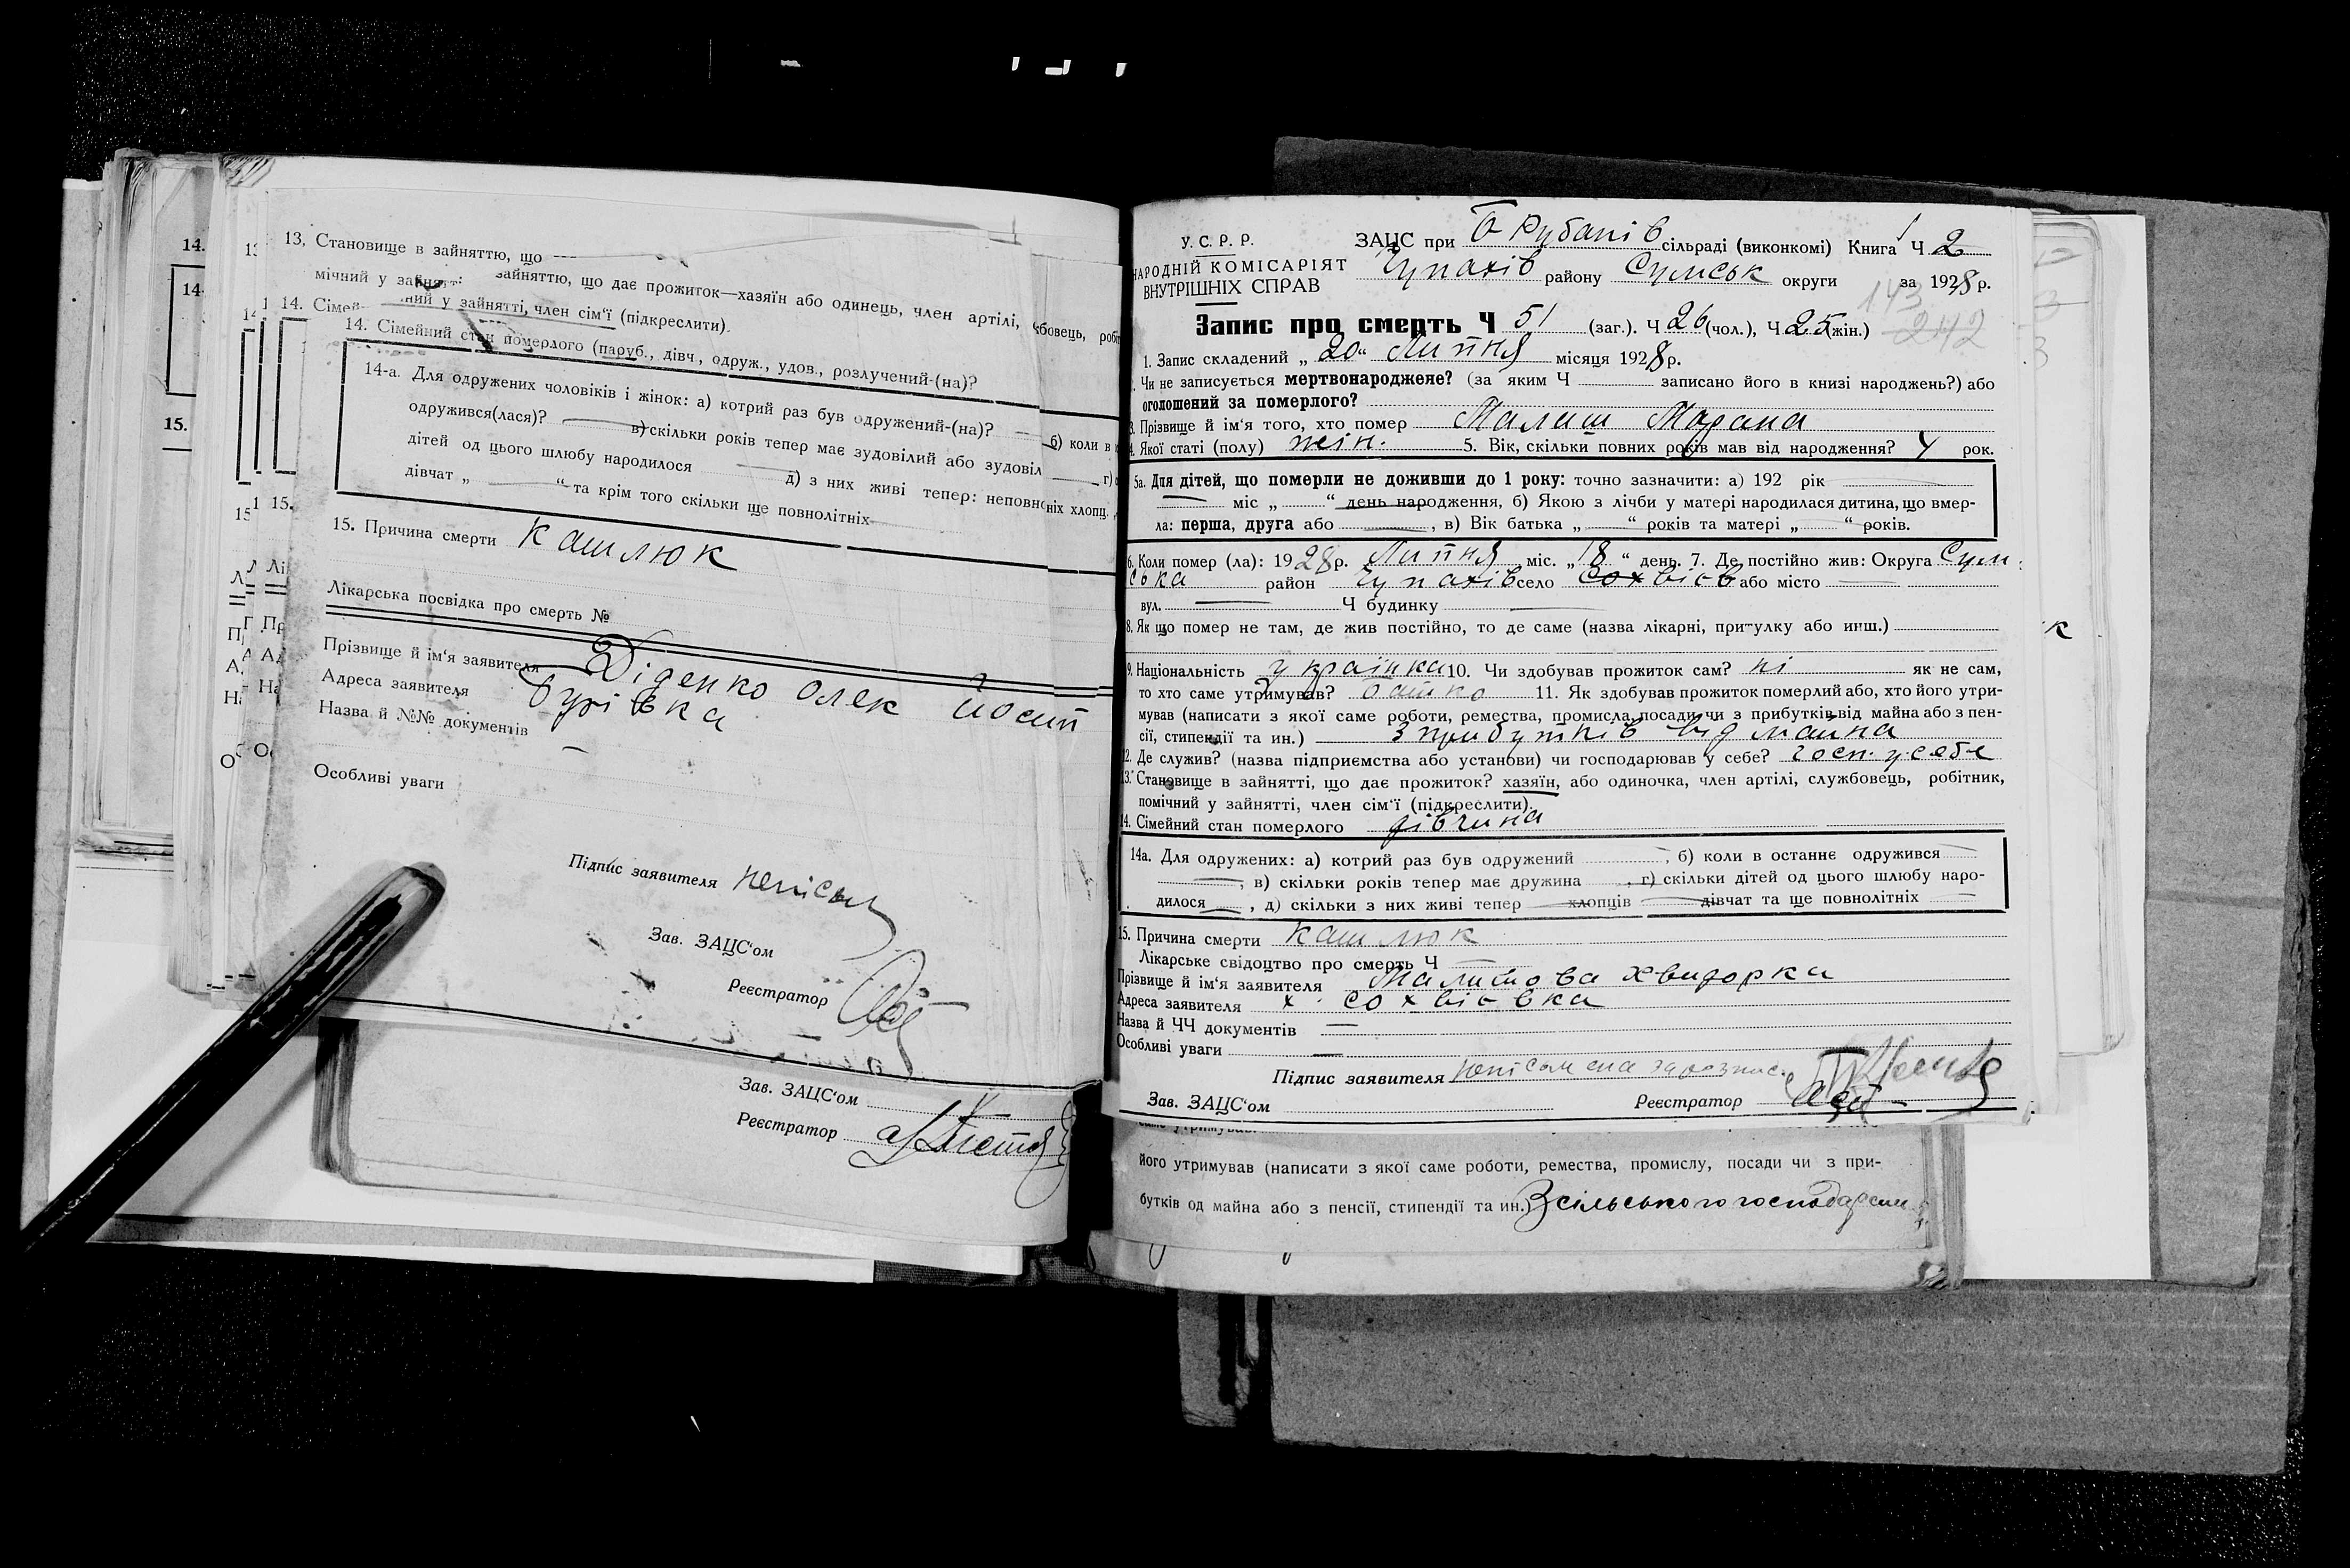 13. Становище в зайняттю, що
зайняттю, що дає прожиток—хазяїн або одинець, член артілі,
мічний у
ний у зайнятті, член сім'ї (підкреслити).
14. Сімей
14. Сімейний стан померлого (паруб., дівч, одруж., удов., розлучений-(на)?
14-а. Для одружених чоловіків і жінок: а) котрий раз був одружений-(на)? б) коли в
одружився(лася)? в) скільки років тепер має зудовілий або зудовіл г)
дітей од цього шлюбу народилося д) з них живі тепер: неповноніх хлопц.
дівчат „ “ та крім того скільки ще повнолітніх
15. Причина смерти кашлюк
Лікарська посвідка про смерть №
Прізвище й ім'я заявителя Діденко Олек Йосип
Адреса заявителя Бурівка
Назва й №№ документів —
Особливі уваги
Підпис заявителя
Зав. ЗАЦС'ом
Реєстратор
Зав. ЗАЦС'ом
Реєстратор
У. С. Р. Р.
НАРОДНІЙ КОМІСАРІЯТ
ВНУТРІШНІХ СПРАВ
ЗАЦС при Рубанів сільраді (виконкомі) Книга Ч 2
Чупахів району Сумськ округи за 1928 р.
143
242
Запис про смерть Ч 51 (заг.). Ч 26 (чол.), Ч 25 (жін.)
1. Запис складений „ 20 “ Липня місяця 1928 р.
Чи не записується мертвонароджене? (за яким Ч записано його в книзі народжень?) або
оголошений за померлого?
3. Прізвище й ім'я того, хто помер Малиш
4. Якої статі (полу) жін. 5. Вік, скільки повних років мав від народження? 4 рок.
5а. Для дітей, що померли не доживши до 1 року: точно зазначити: а) 192 рік
міс „ “ день народження, б) Якою з лічби у матері народилася дитина, що вмер-
ла: перша, друга або , в) Вік батька „ “ років та матері „ “ років.
6. Коли помер (ла): 1928 р. Липня міс. „ 18 “ день. 7. Де постійно жив: Округа Сум
ська район Чупахів село або місто
вул. Ч будинку
8. Як що помер не там, де жив постійно, то де саме (назва лікарні, притулку або инш.)
9. Національність українка 10. Чи здобував прожиток сам? ні як не сам,
то хто саме утримував? батько 11. Як здобував прожиток померлий або, хто його утри-
мував (написати з якої саме роботи, ремества, промисла, посади чи з прибутків від майна або з пен-
сії, стипендії та ин.) з прибутків від майна
12. Де служив? (назва підприємства або установи) чи господарював у себе? госп. у себе
13. Становище в зайнятті, що дає прожиток? хазяїн, або одиночка, член артілі, службовець, робітник,
помічний у зайнятті, член сім'ї (підкреслити).
14. Сімейний стан померлого дівчина
14а. Для одружених: а) котрий раз був одружений , б) коли в останнє одружився
, в) скільки років тепер має дружина , г) скільки дітей од цього шлюбу наро-
дилося , д) скільки з них живі тепер хлопців дівчат та ще повнолітніх
15. Причина смерти кашлюк
Лікарське свідоцтво про смерть Ч —
Прізвище й ім'я заявителя Хвидорка
Адреса заявителя х.
Назва й ЧЧ документів —
Особливі уваги —
Підпис заявителя
Зав. ЗАЦС'ом Реєстратор
його утримував (написати з якої саме роботи, ремества, промислу, посади чи з при-
бутків од майна або з пенсії, стипендії та ин.) З сільського господарств